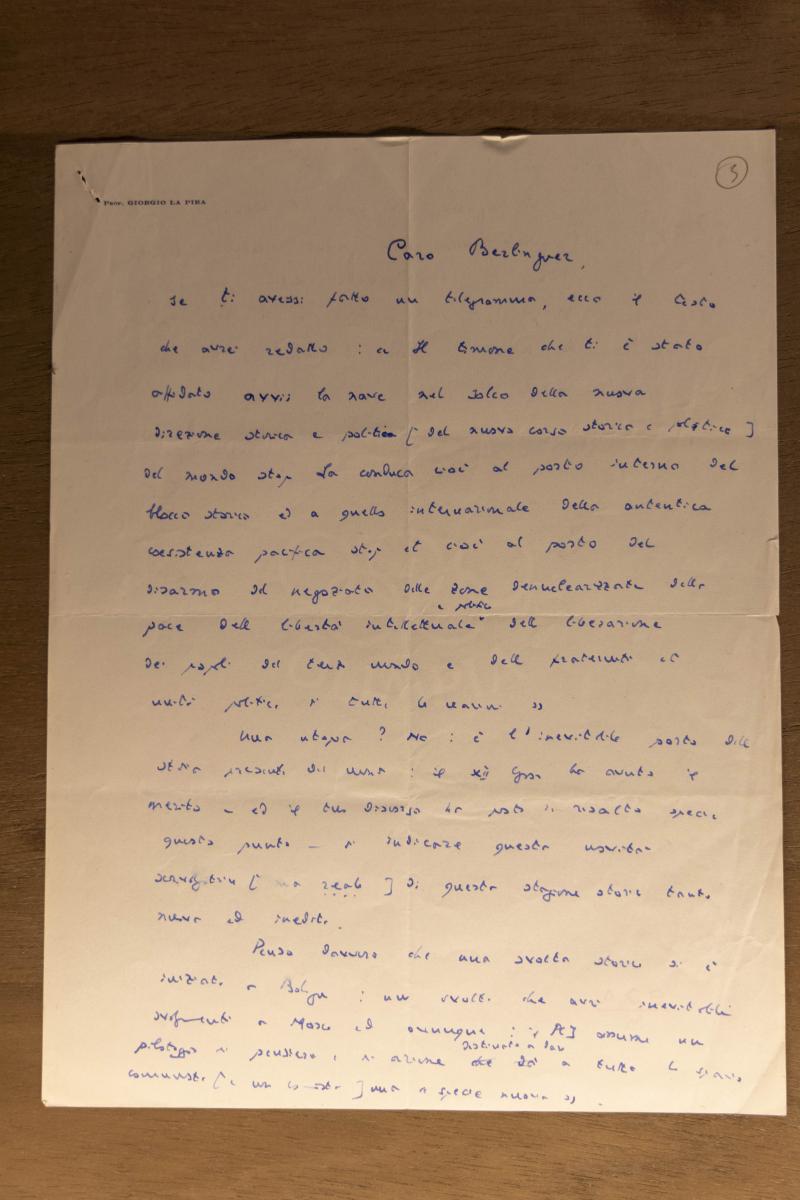 3
Prof. GIORGIO LA PIRA
Caro Berlinguer,
se ti avessi fatto un telegramma, ecco il testo
che avrei redatto : « Il timone che ti è stato
affidato avvii la nave nel solco della nuova
direzione storica e politica [ del nuovo corso storico e politico ]
del mondo stop La conduca cioè al porto interno del
blocco storico ed a quello internazionale della autentica
coesistenza pacifica stop et cioè al porto del
disarmo del negoziato delle zone denuclearizzate della
e politica
pace della libertà intellettuale della liberazione
dei popoli del terzo mondo e della fraternità et
unità politica di tutte le »
Una utopia ? No : è l'inevitabile porto della
storia presente del mondo : il XII ha avuto il
merito – ed il tuo discorso ha posto in risalto
questo punto – di indicare questa
[ ma reale ] di questa stagione storica tanto
nuova ed inedita.
Penso davvero che una svolta storica si è
iniziata a Bologna : una svolta che avrà inevitabili
a Mosca ed ovunque : il PCI assume un
destinato a dar
pilotaggio di pensiero e di azione che dà a tutto lo spazio
comunista [ e non ] una specie nuova »